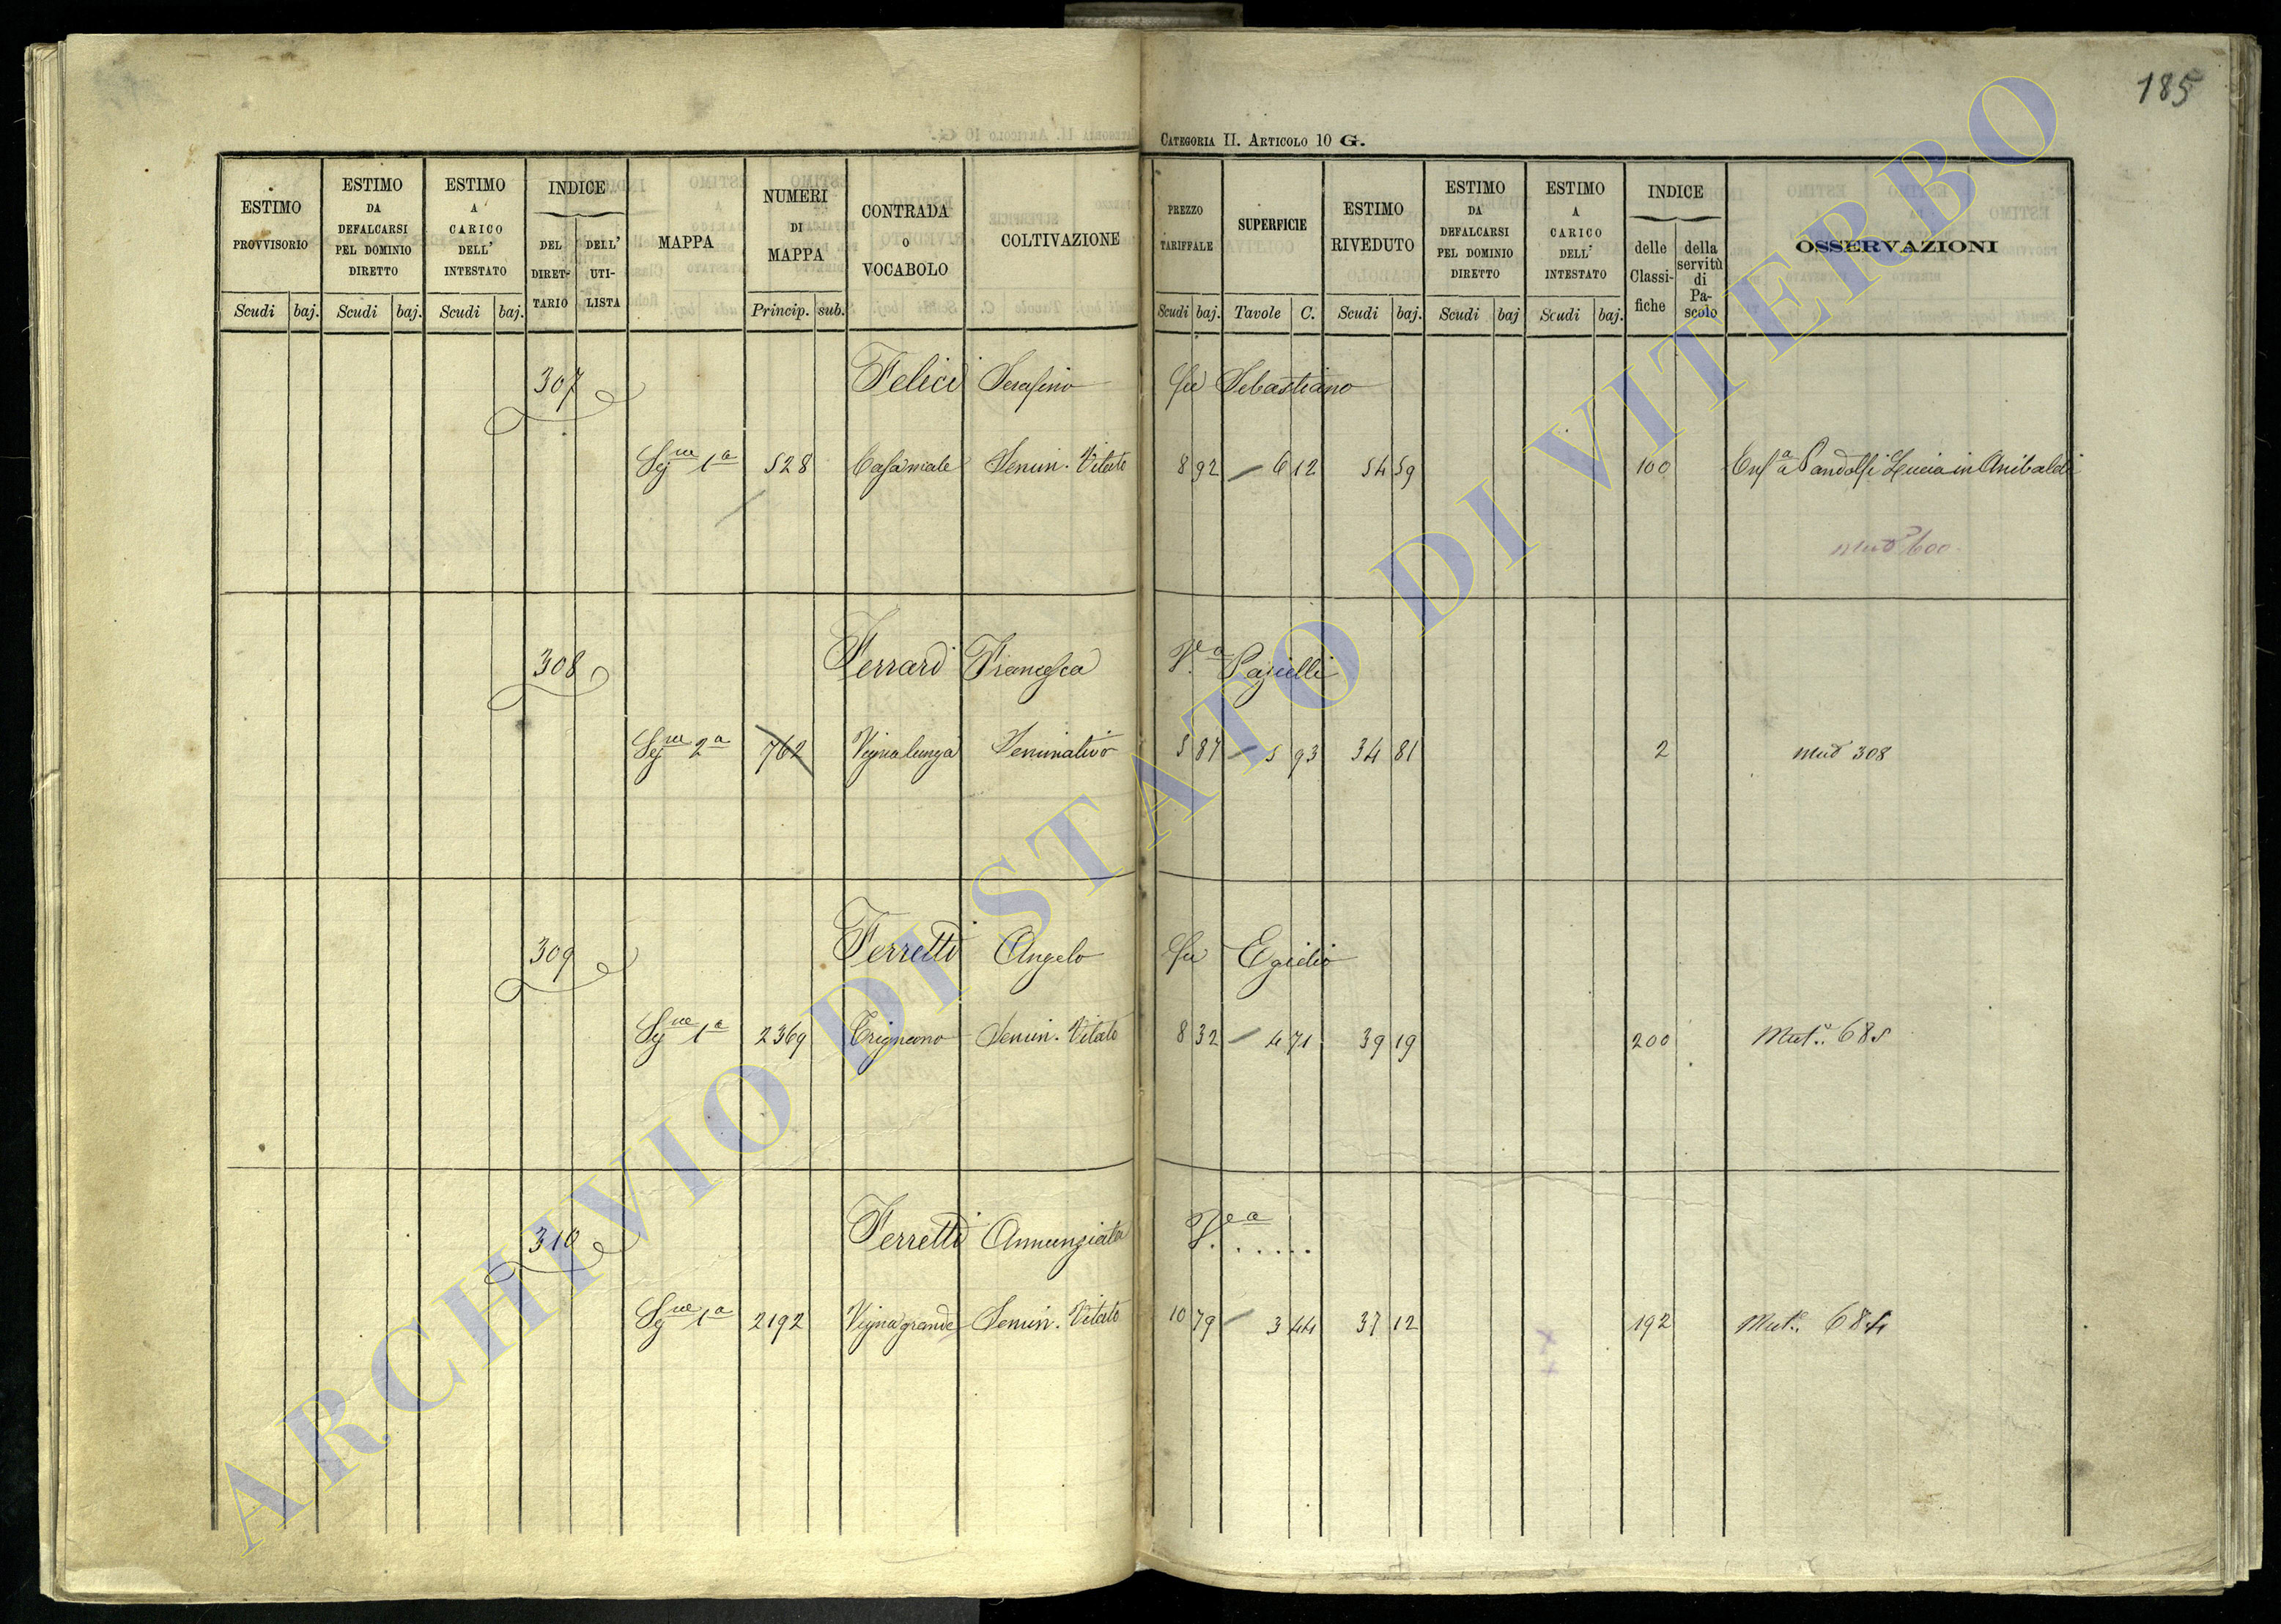 185
CATEGORIA II. ARTICOLO 10 G.
ESTIMO PROVVISORIO Scudi baj. ESTIMO DA DEFALCARSI PEL DOMINIO DIRETTO Scudi baj. ESTIMO A CARICO DELL' INTESTATO Scudi baj. INDICE DEL DIRETTARIO DELL' UTILISTA MAPPA NUMERI DI MAPPA Princip. sub. CONTRADA O VOCABOLO COLTIVAZIONE PREZZO TARIFFALE Scudi baj. SUPERFICIE Tavole C. ESTIMO RIVEDUTO Scudi baj. ESTIMO DA DEFALCARSI PEL DOMINIO DIRETTO Scudi baj ESTIMO A CARICO DELL' INTESTATO Scudi baj. INDICE delle Classifiche della servitù di Pascolo OSSERVAZIONI
307 Felici Serafino fu Sebastiano
Segne 1a 528 Semin. Vitato 8 92 6 12 54 59 100 Enfa a Pandolfi Lucia in Anibaldi
Mut 600
308 Ferrari Francesca Va
Segne 2a 762 Vignalunga Seminativo 5 87 5 93 34 81 2 Mut 308
309 Ferretti Angelo fu Egidio
Segne 1a 2369 Trignano Semin. Vitato 8 32 4 71 39 19 200 Mut. 685
310 Ferretti Annunziata Vea ......
Segne 1a 2192 Vignagrande Semin. Vitato 10 79 3 44 37 12 192 Mut. 684
ARCHIVIO DI STATO DI VITERBO